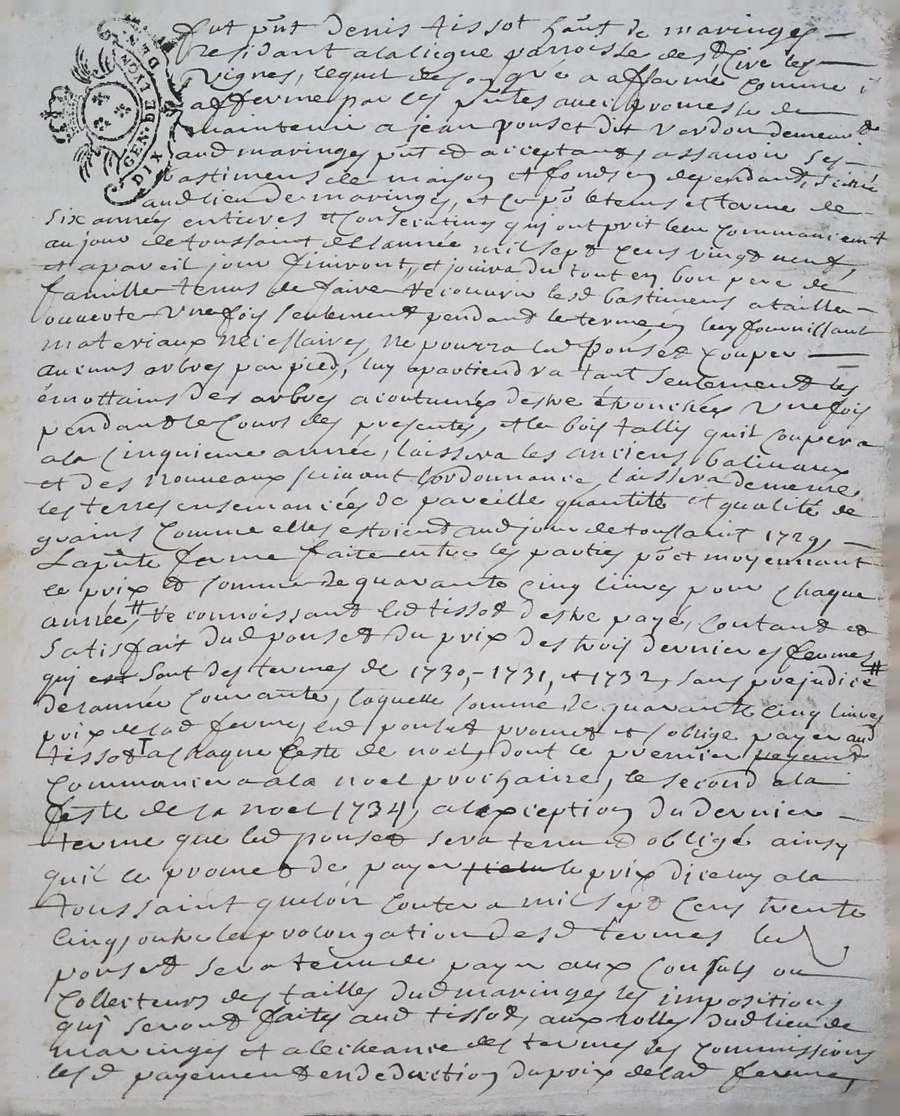 GEN. DE LYON
DIX DEN.
fut pnt denis tissot hant de maringes
residant alaliegue parroisse de st Cire les
Vignes, lequel de son gré a affermé comme il
afferme par ces pntes avec promesse de
maintenir a jean ponset dit verdon demeurt
aud maringes pnt et acceptant, assavoir ses
bastimens de maison et fonds en dependant, scitué
aud lieu de maringes, et ce po le tems et terme de
six années entieres et consecutives qui ont prit leur commancement
au jour de toussaint de lannée mil sept cens vingt neuf,
et apareil jour finiront, et jouira du tout en bon pere de
famille tenus de faire recouvrir lesd bastimens a taille
ouverte une fois seulement pendant le terme en luy fournissant
materiaux necessaires, ne pourra led Ponset couper
aucuns arbres par pied, luy apartiendra tant seulement les
émottains des arbres acoutumés destre étronchés une fois
pendant le cours des presentes, et le bois tallis quil coupera
a la cinquieme année, laissera les anciens balivaux
et des nouveaux suivant lordonnance, laissera de meme
les terres ensemancées de pareille quantité et qualité de
grains comme elles estoient aud jour de toussaint 1729,
La pnte ferme faite entre les parties po et moyennant
le prix et somme de quarante cinq livres pour chaque
année, # reconnoissant led tissot destre payé, contant et
satisfait dud ponset du prix des trois dernieres fermes
qui est sont des termes de 1730, 1731, et 1732, sans prejudice #
de lannée courante, laquelle somme de quarante cinq livres
prix de lad ferme, led ponset promet et soblige payer aud
tissot a chaque feste de noel, dont le premier payant
commancera a la noel prochaine, le second a la
feste de la noel 1734, a lexception du dernier
terme que led ponset sera tenu et obligé ainsy
quil le promet de payer le prix diceluy a la
toussaint que lon contera mil sept cens trente
cinq, outre la prolongation desd termes led
ponset sera tenu de payer aux consuls ou
collecteurs des tailles dud maringes les impositions
qui seront faites aud tissot, aux rolles dud lieu de
maringes et a lecheance des termes les commissions
lesd payement en deduction du prix de lad ferme,